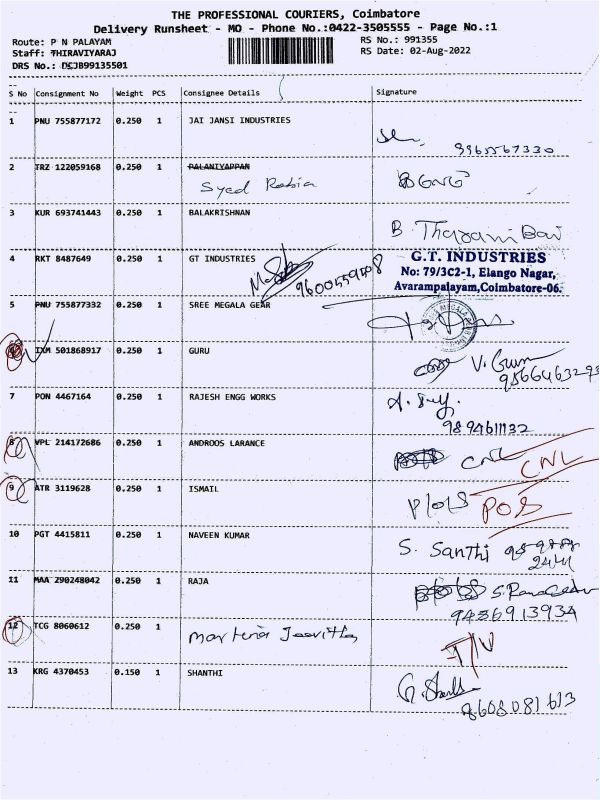 THE PROFESSIONAL COURIERS, Coimbatore
Delivery Runsheet - MO - Phone No.:0422-3505555 - Page No.:1
Route: P N PALAYAM RS No.: 991355
Staff: THIRAVIYARAJ RS Date: 02-Aug-2022
DRS No.: DCJB99135501
S No Consignment No Weight PCS Consignee Details Signature
1 PNU 755877172 0.250 1 JAI JANSI INDUSTRIES
9965567330
2 TRZ 122059168 0.250 1 PALANIYAPPAN
Syed Rabia
3 KUR 693741443 0.250 1 BALAKRISHNAN
B. Tharani Bai
4 RKT 8487649 0.250 1 GT INDUSTRIES
G.T. INDUSTRIES
No: 79/3C2-1, Elango Nagar,
Avarampalayam,Coimbatore-06.
5 PNU 755877332 0.250 1 SREE MEGALA GEAR
6 IXM 501868917 0.250 1 GURU
V. Gurn
9566463293
7 PON 4467164 0.250 1 RAJESH ENGG WORKS
9894611132
8 VPL 214172686 0.250 1 ANDROOS LARANCE
CNL CNL
9 ATR 3119628 0.250 1 ISMAIL
POS
10 PGT 4415811 0.250 1 NAVEEN KUMAR
S. Santhi
2441
11 MAA 290248042 0.250 1 RAJA
9436913934
12 TCG 8060612 0.250 1
T/V
13 KRG 4370453 0.150 1 SHANTHI
8608081613